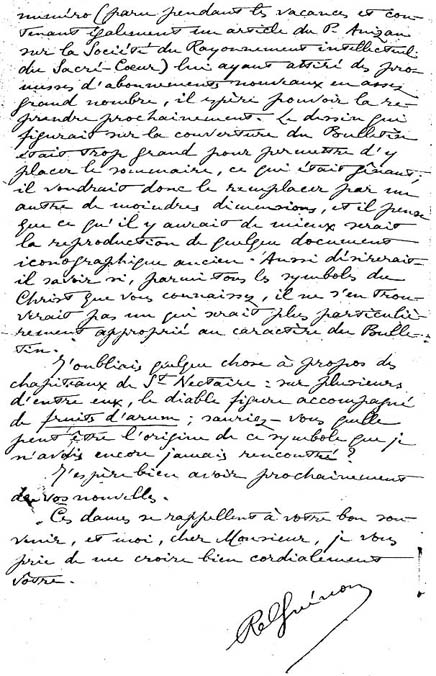 numéro (paru pendant les vacances et con-
tenant également un article du P. Anizan
sur la Société du Rayonnement intellectuel
du Sacré-Cœur) lui ayant attiré des pro-
messes d'abonnements nouveaux en assez
grand nombre, il espère pouvoir la re-
prendre prochainement. Le dessin qui
figurait sur la couverture du Bulletin
était trop grand pour permettre d'y
placer le sommaire, ce qui était gênant;
il voudrait donc le remplacer par un
autre de moindres dimensions, et il pense
que ce qu'il y aurait de mieux serait
la reproduction de quelque document
iconographique ancien. Aussi désirerait-
il savoir si, parmi tous les symboles du
Christ que vous connaissez, il ne s'en trou-
verait pas un qui serait plus particuliè-
rement approprié au caractère du Bulle-
tin.
J'oubliais quelque chose à propos des
chapiteaux de St Nectaire: sur plusieurs
d'entre eux, le diable figure accompagné
de fruits d'arum; sauriez-vous quelle
peut être l'origine de ce symbole que je
n'avais encore jamais rencontré?
J'espère bien avoir prochainement
de vos nouvelles.
Ces dames se rappellent à votre bon sou-
venir, et moi, cher Monsieur, je vous
prie de me croire bien cordialement
vôtre.
René Guénon